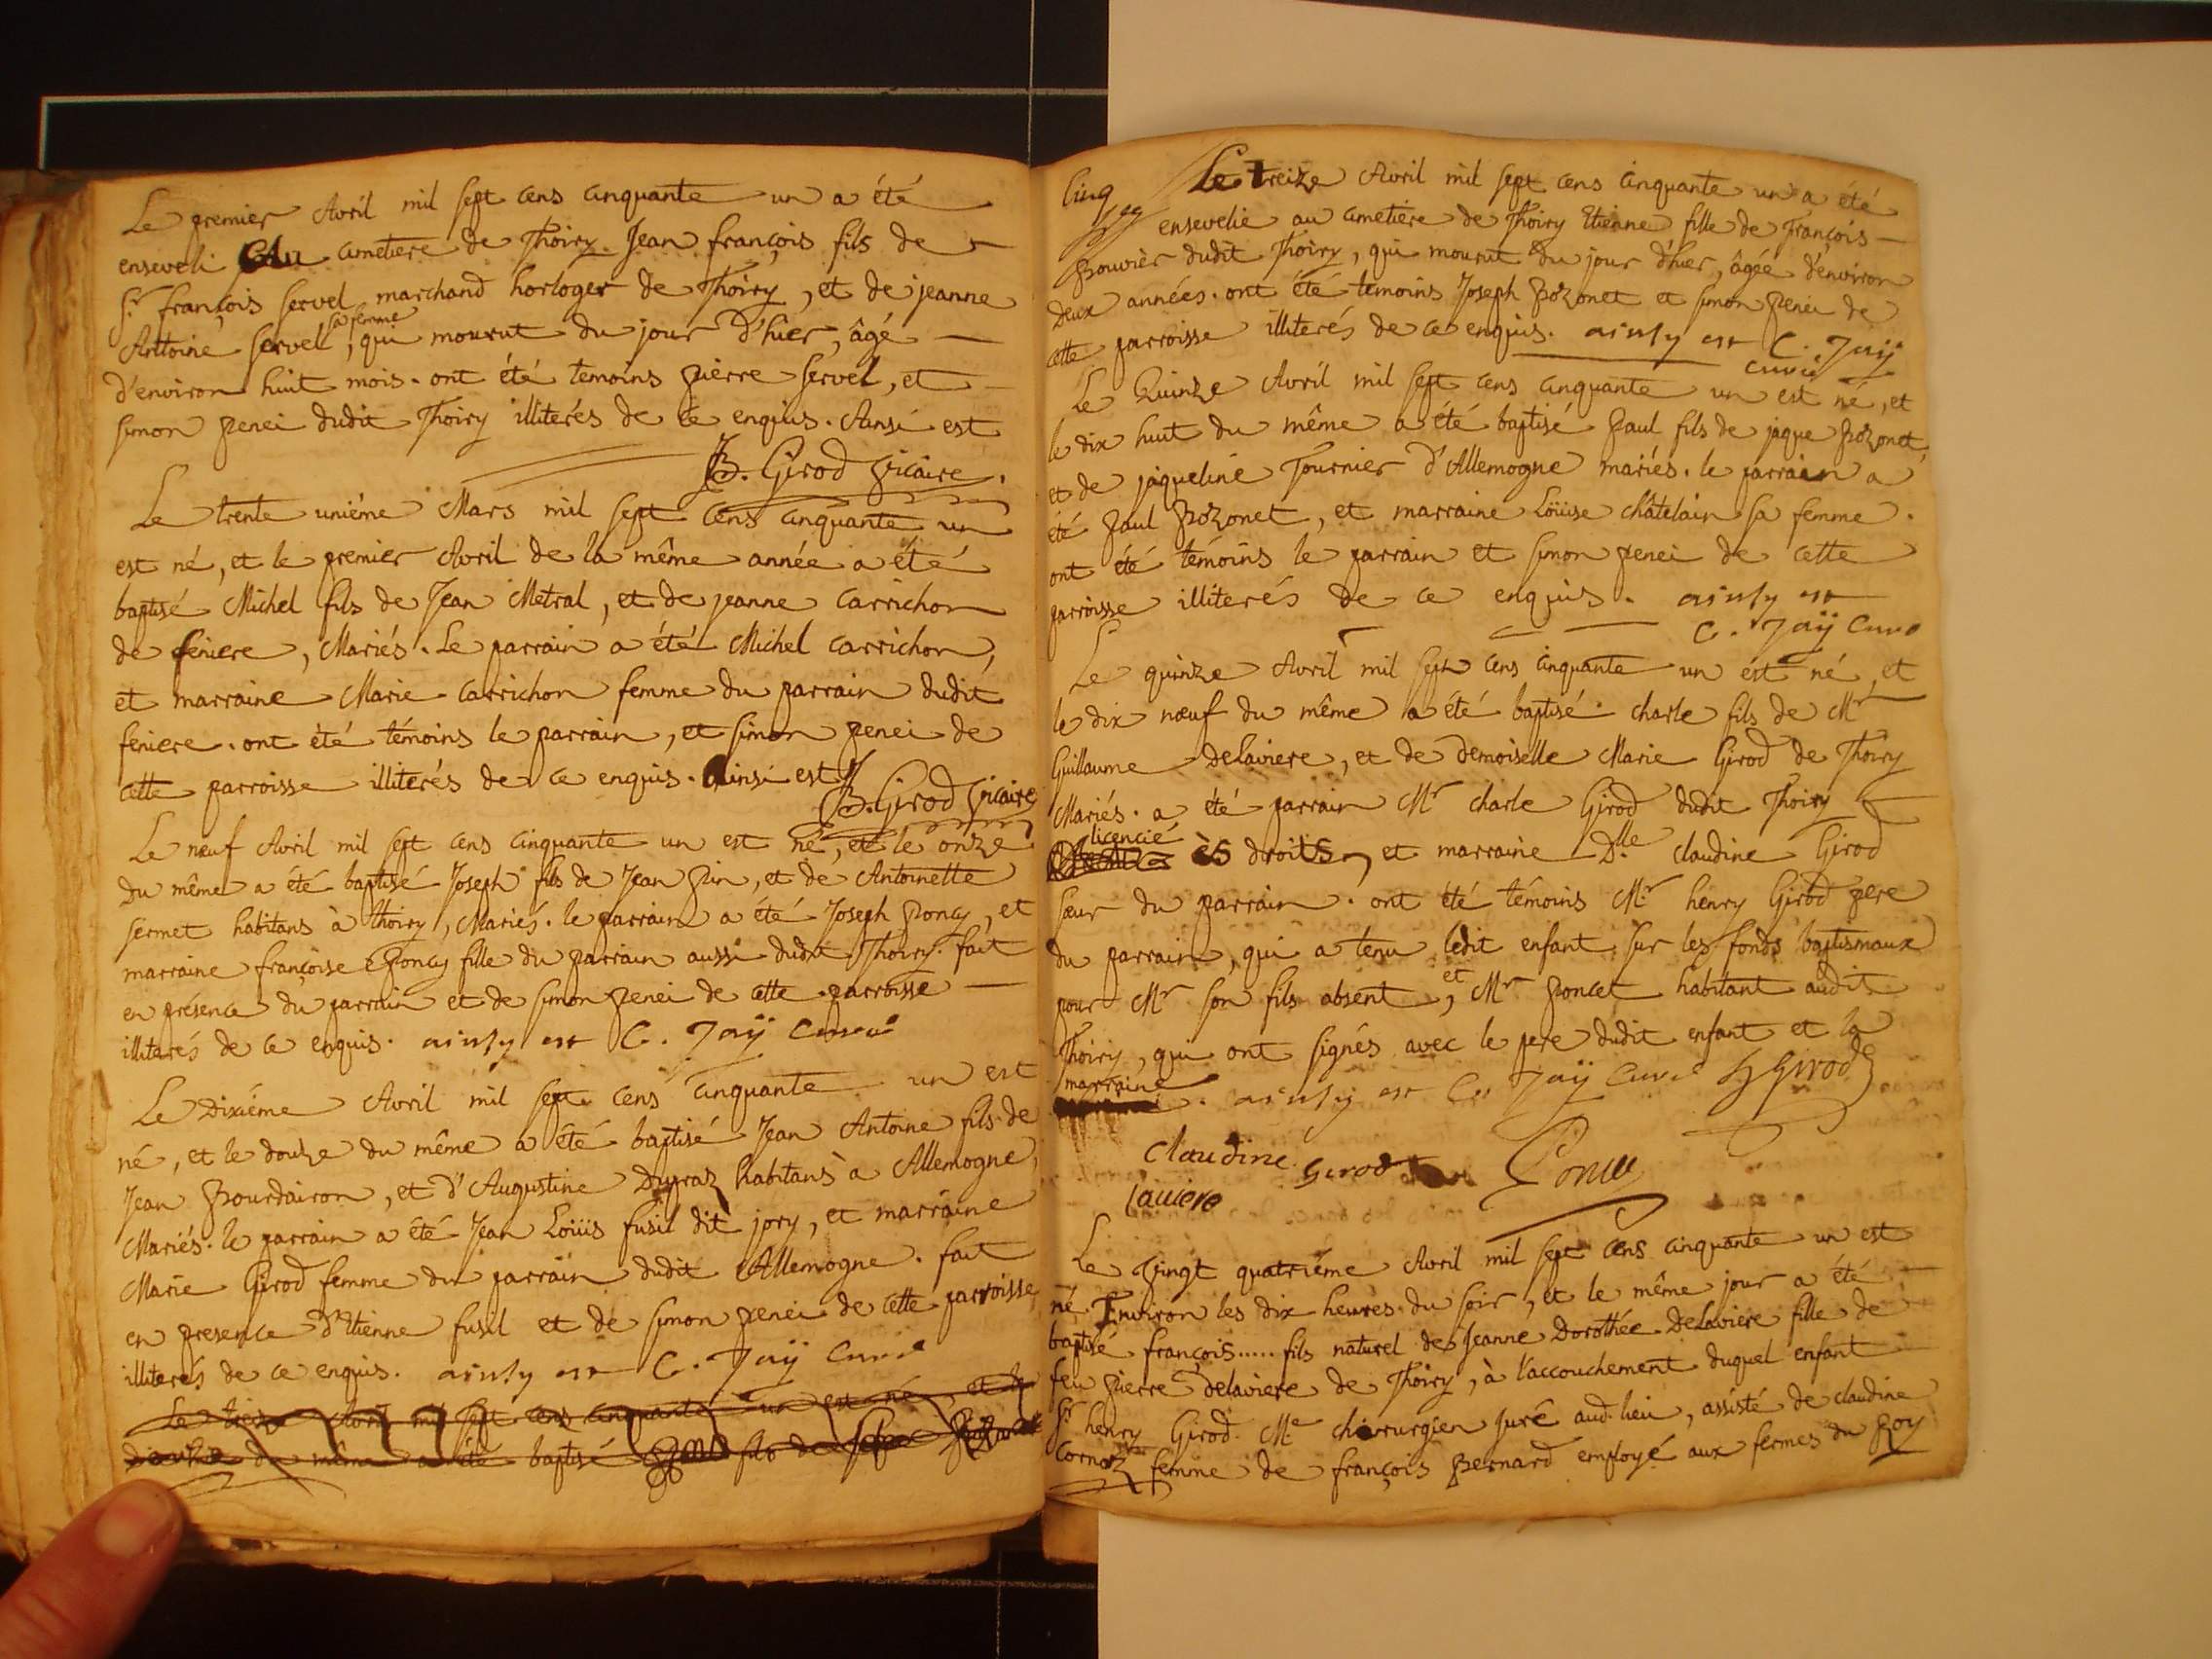 Le premier Avril mil sept cens cinquante un a été
enseveli Au cimetiere de Thoiry Jean françois fils de
Sr. françois servel marchand horloger de Thoiry, et de jeanne
Antoine servel sa femme, qui mourut du jour d'hier, âgé
d'environ huit mois. ont été temoins pierre servel, et
simon penei dudit Thoiry illiterés de ce enquis. Ainsi est
JB. Girod vicaire.
Le trente uniéme Mars mil sept cens cinquante un
est né, et le premier Avril de la même année a été
baptisé Michel fils de Jean Metral, et de jeanne carrichon
de feniere, Mariés. Le parrain a été Michel carrichon,
et marraine Marie carrichon femme du parrain dudit
feniere. ont été témoins le parrain, et simon penei de
cette parroisse illiterés de ce enquis. Ainsi est
JB. Girod vicaire
Le neuf Avril mil sept cens cinquante un est né, et le onze
du même a été baptisé Joseph fils de Jean Pin, et de Antoinette
sermet habitans à Thoiry, Mariés. le parrain a été Joseph Poncy, et
marraine françoise Poncy fille du parrain aussi dudit Thoiry. fait
en présence du parrain et de simon penei de cette parroisse
illiterés de ce enquis. ainsy est C. Jaÿ Curé
Le Dixiéme Avril mil sept cens cinquante un est
né, et le douze du même a été baptisé Jean Antoine fils de
Jean Bourdairon, et d'Augustine Dupraz habitans à Allemogne,
Mariés. le parrain a été Jean Loüis fusil dit jory, et marraine
Marie Girod femme du parrain dudit Allemogne. fait
en presence d'Etienne fusil et de simon penei de cette parroisse
illiterés de ce enquis. ainsy est C. Jaÿ Curé
Le treize Avril mil sept cens cinquante un est né, et le
du même a été baptisé fils de
Cinq
Le treize Avril mil sept cens cinquante un a été
ensevelie au cimetiere de Thoiry Etienne fille de François
Bouvier dudit Thoiry, qui mourut du jour d'hier, âgée d'environ
Deux années. ont été temoins Joseph Bozonet et simon penei de
cette parroisse illiterés de ce enquis. ainsy est C. Jaÿ
curé
Le Quinze Avril mil sept cens cinquante un est né, et
le dix huit du même a été baptisé Paul fils de jaque Bozonet,
et de jaqueline Tournier d'Allemogne mariés. le parrain a
été Paul Bozonet, et marraine Loüise châtelain sa femme.
ont été témoins le parrain et simon penei de cette
parroisse illiterés de ce enquis. ainsy est
C. Jaÿ Curé
Le quinze Avril mil sept cens cinquante un est né, et
le dix nœuf du même a été baptisé charle fils de Mr
Guillaume Delaviere, et de demoiselle Marie Girod de Thoiry
Mariés. a été parrain Mr charle Girod dudit Thoiry
licencié ès droits, et marraine Dlle claudine Girod
sœur du parrain. ont été témoins Mr. henry Girod pere
du parrain, qui a tenu ledit enfant sur les fonds baptismaux
pour Mr son fils absent, et Mr Poncet habitant audit
Thoiry, qui ont signés avec le pere dudit enfant et la
marraine. ainsy est C. Jaÿ Curé h Girod
Claudine Girod
Poncet
laviere
Le Vingt quatriéme Avril mil sept cens cinquante un est
né. Environ les dix heures du soir, et le même jour a été
baptisé françois..... fils naturel de Jeanne Dorothée Delaviere fille de
feu pierre Delaviere de Thoiry, à l'accouchement duquel enfant
Sr. henry Girod. Me chirurgien juré aud. lieu, assisté de claudine
Cornoz femme de françois Bernard employé aux fermes du Roy